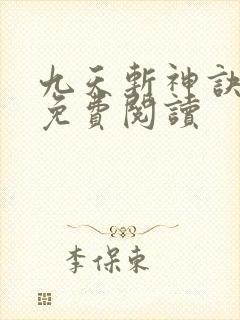 九天斬神訣
免費閱讀
李保東